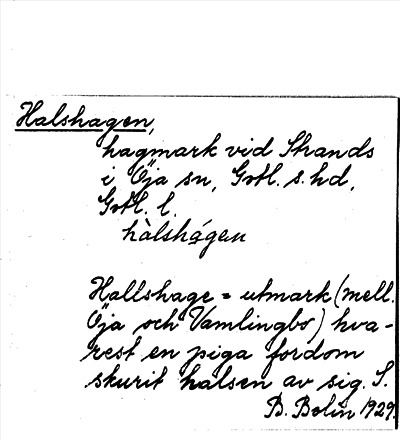 Halshagen,
hagmark vid Strands
i Öja sn, Gotl. s. hd,
Gotl. l.
hàlshágen
Hallshage = utmark (mell.
Öja och Vamlingbo) hva-
rest en piga fordom
skurit halsen av sig. S.
B. Bolin 1929.